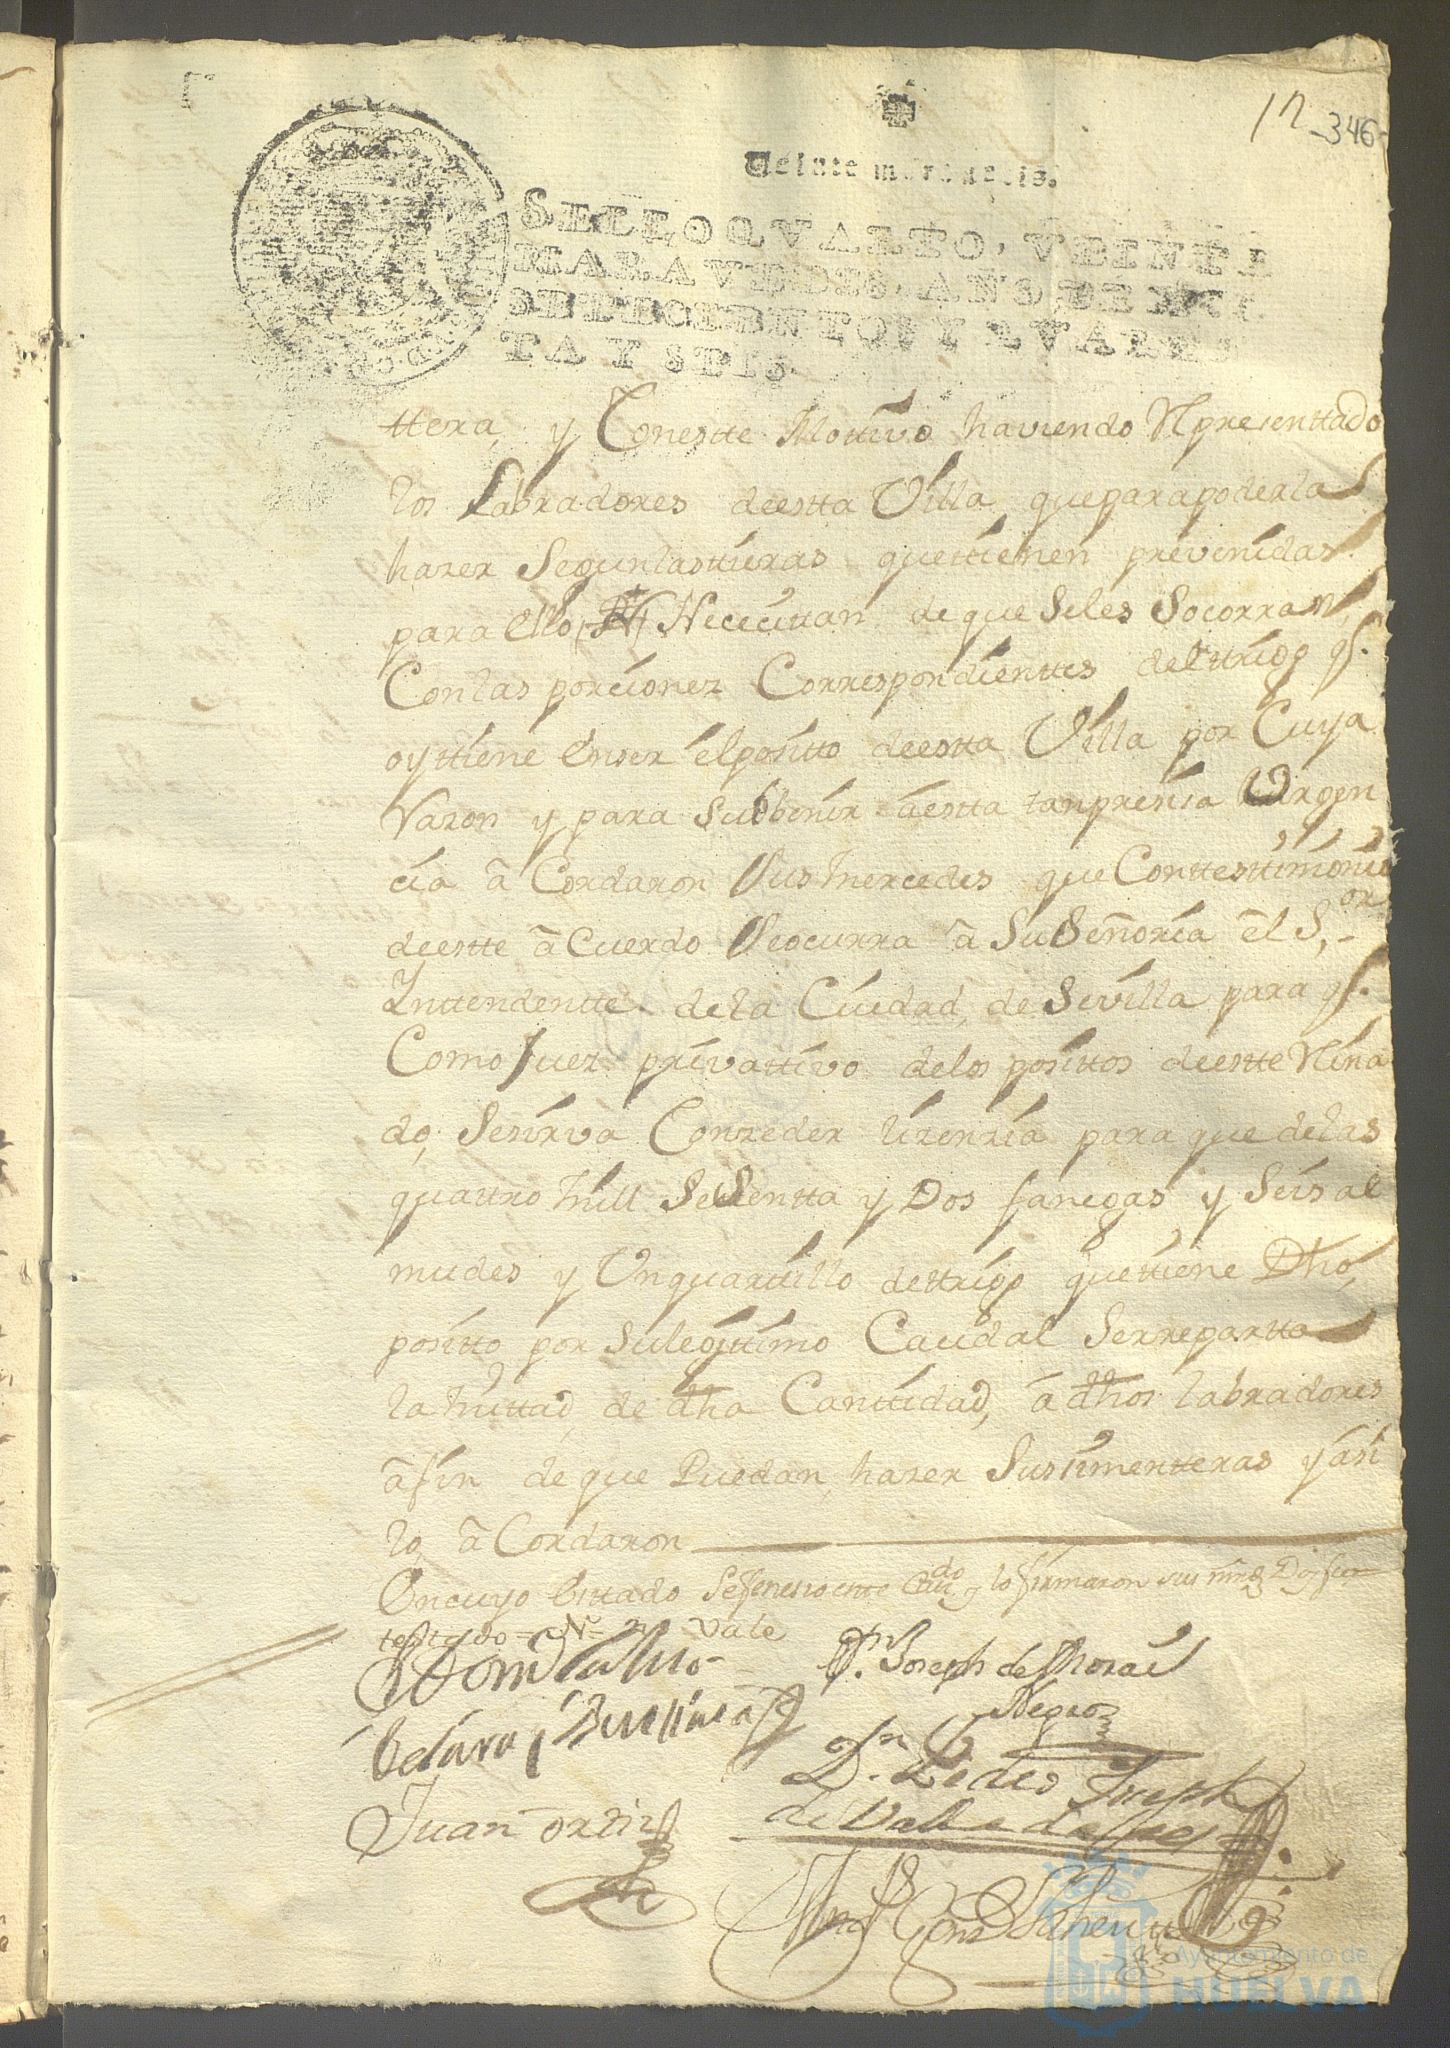 12 346
Veinte maravedis.
SELLO QVARTO, VEINTE
MARAVEDIS, AÑO DE MIL
SETECIENTOS Y QVAREN
TA Y SEIS.
ttera, y Conestte Mottivo haviendo Representtado
los Labradores deestta Villa, queparapoderlas
hazer Segunlastieras quettienen prevenidas
para ello, Nececittan de que Seles Socorran,
Conlas porciones Correspondienttes delttrigo q.
oyttiene Enser elposito deestta Villa por Cuya
Razon y para Subbenir aestta tanpresisa Urgen
cia aCordaron Susmercedes que Conttesttimonio
deestte aCuerdo Seocurra a SuSeñoria el S.or
Ynttendentte de la Ciudad, de Sevilla para q.
Como Juez privattivo delos posittos deestte Reina
do, Sesirva Conzeder lizenzia para que delas
quattro mill Sesentta y Dos fanegas y Seis al
mudes y Unquartillo dettrigo quettiene Dho,
positto por sulegittimo Caudal Serrepartta
lamittad, de dha Canttidad, a dhos labradores
afin de que Puedan, hazer Sussimentteras yasi
lo aCordaron
Encuyo Esttado Sefenesio este Cavdo y lo firmaron sus mrds Doy fee
testado = N = no Vale
Dn. Joseph de Moraes
Negro
Juan ortiz
Dn. Pedro Joseph
de Valladares
Ayuntamiento de
HUELVA